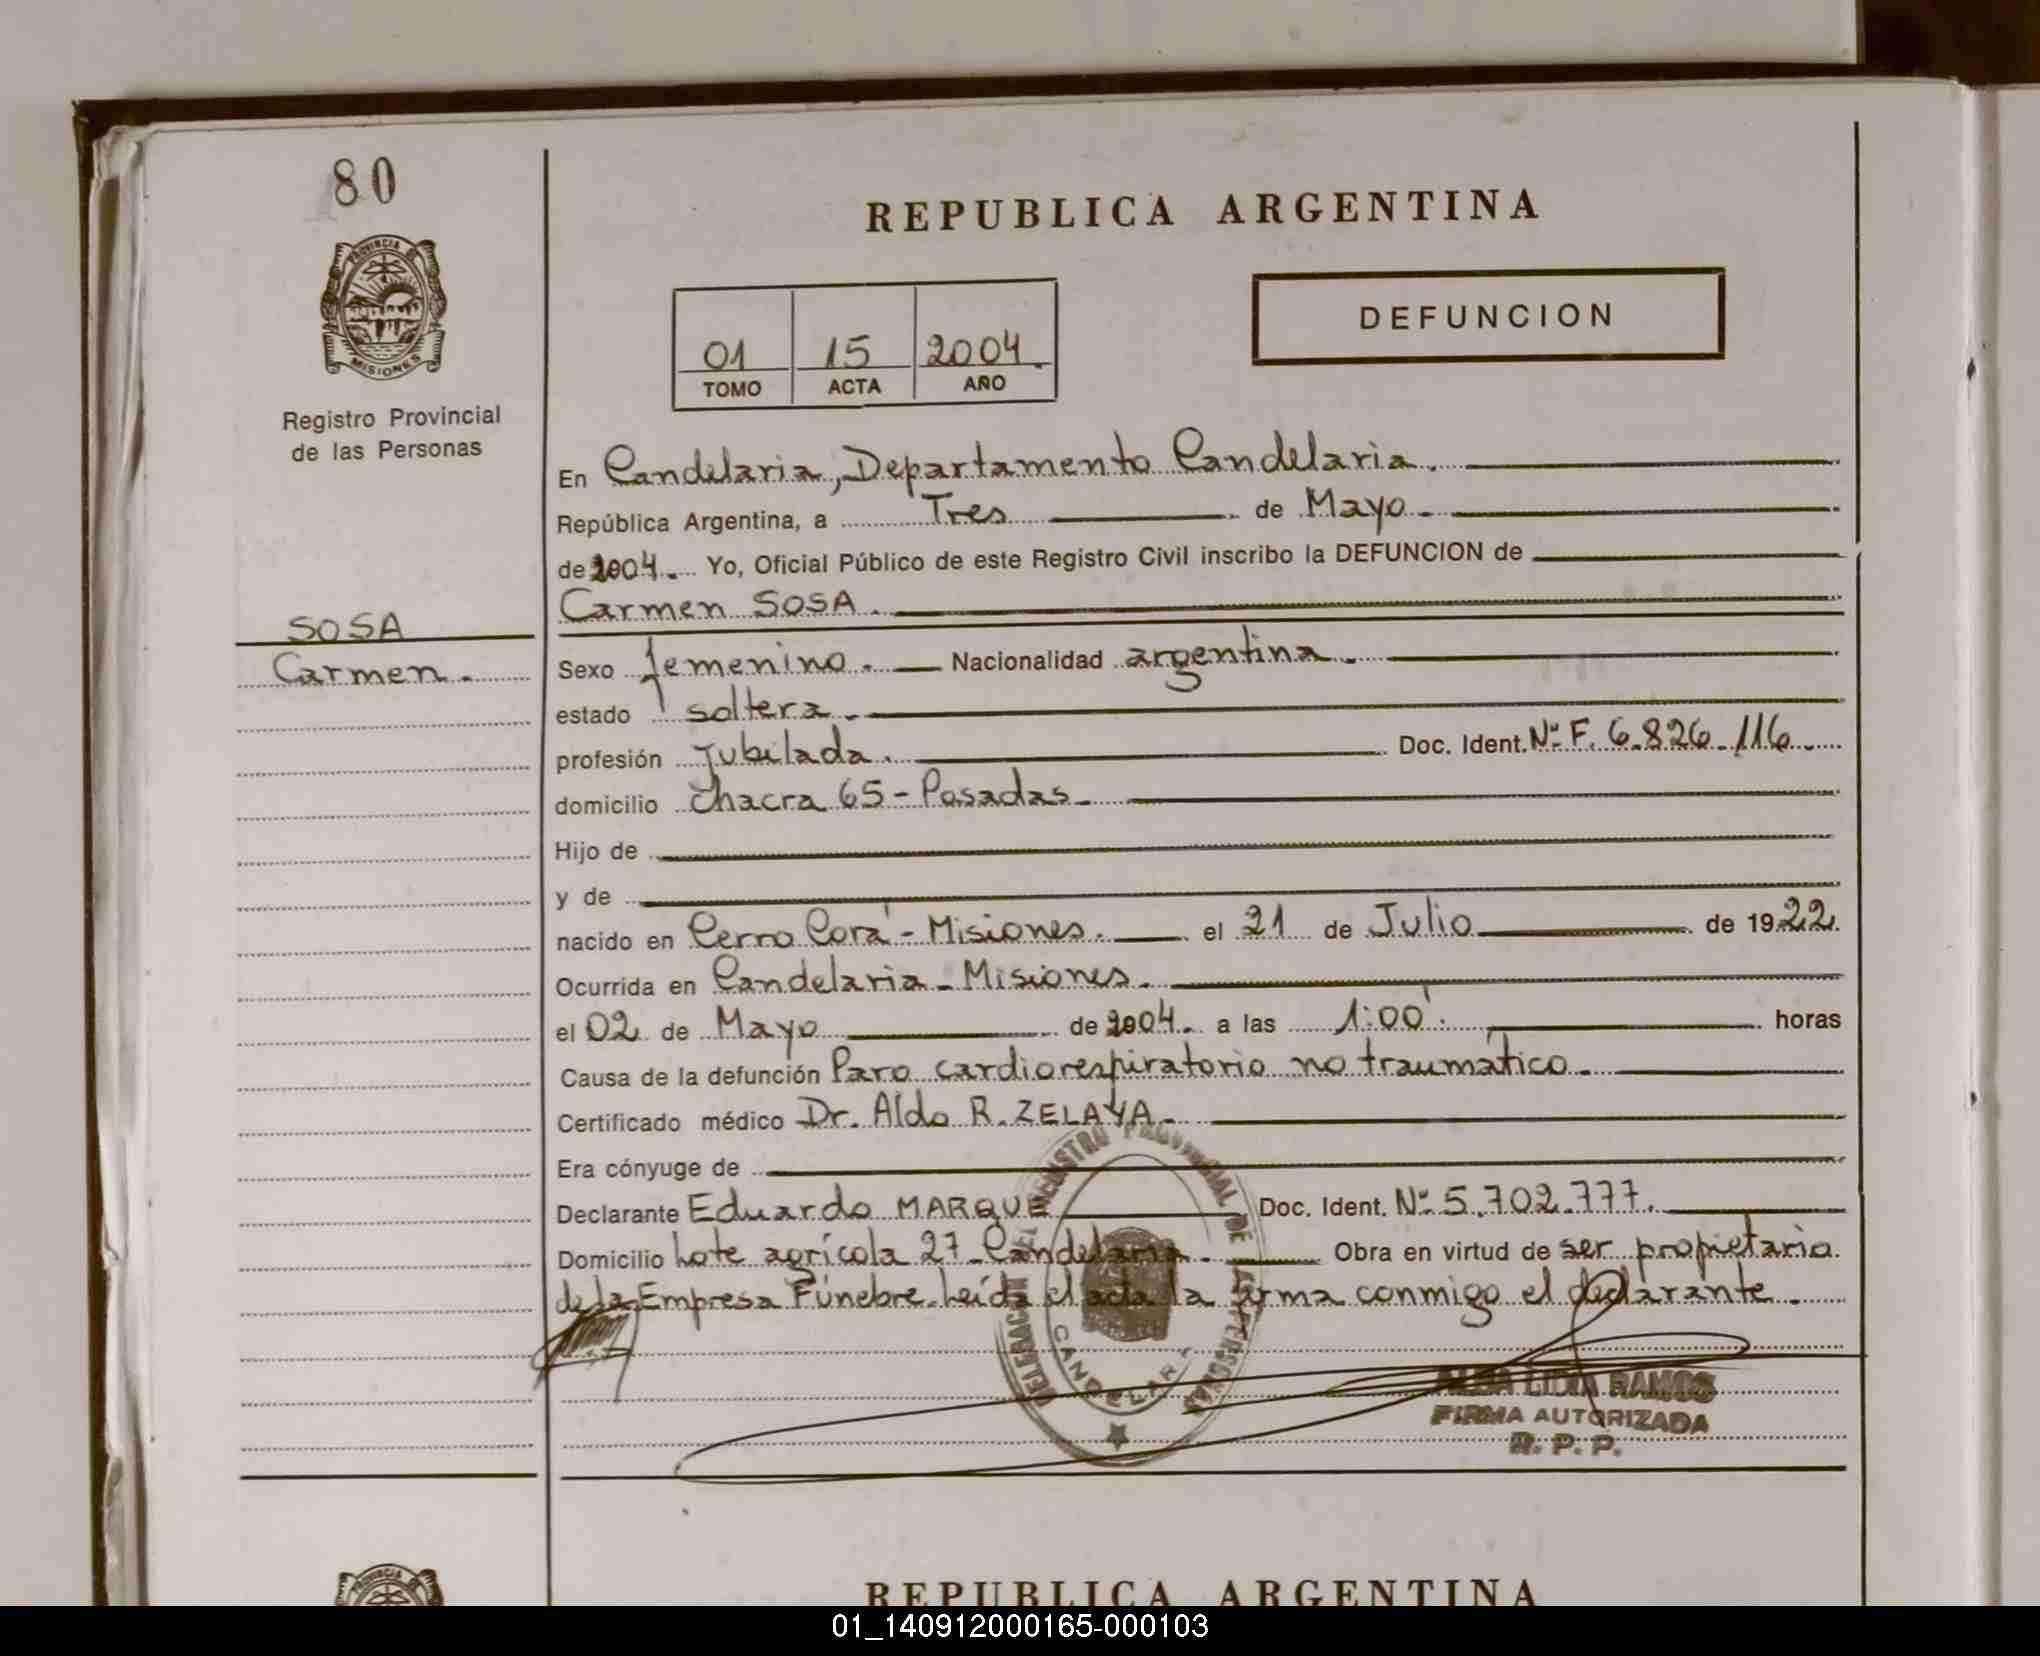 80
REPUBLICA ARGENTINA
PROVINCIA DE
MISIONES
Registro Provincial
de las Personas
01 15 2004
TOMO ACTA AÑO
DEFUNCION
En Candelaria, Departamento Candelaria.
República Argentina, a Tres de Mayo.
de 2004. Yo, Oficial Público de este Registro Civil inscribo la DEFUNCION de
Carmen SOSA.
SOSA
Carmen.
Sexo femenino. Nacionalidad argentina.
estado soltera.
profesión Jubilada. Doc. Ident. Nº F. 6.826.116.
domicilio Chacra 65 - Posadas.
Hijo de
y de
nacido en Cerro Corá - Misiones. el 21 de Julio de 1922.
Ocurrida en Candelaria - Misiones.
el 02 de Mayo de 2004. a las 1:00'. horas
Causa de la defunción Paro cardiorespiratorio no traumático.
Certificado médico Dr. Aldo R. ZELAYA.
Era cónyuge de
Declarante Eduardo MARQUE Doc. Ident. Nº 5.702.777.
Domicilio Lote agrícola 27 - Candelaria. Obra en virtud de ser propietario
de la Empresa Fúnebre. Leída el acta la firma conmigo el declarante.
DELEGACION DEL REGISTRO PROVINCIAL DE LAS PERSONAS
CANDELARIA
ALBA LIDIA RAMOS
FIRMA AUTORIZADA
R. P. P.
PROVINCIA DE
REPUBLICA ARGENTINA
01_140912000165-000103